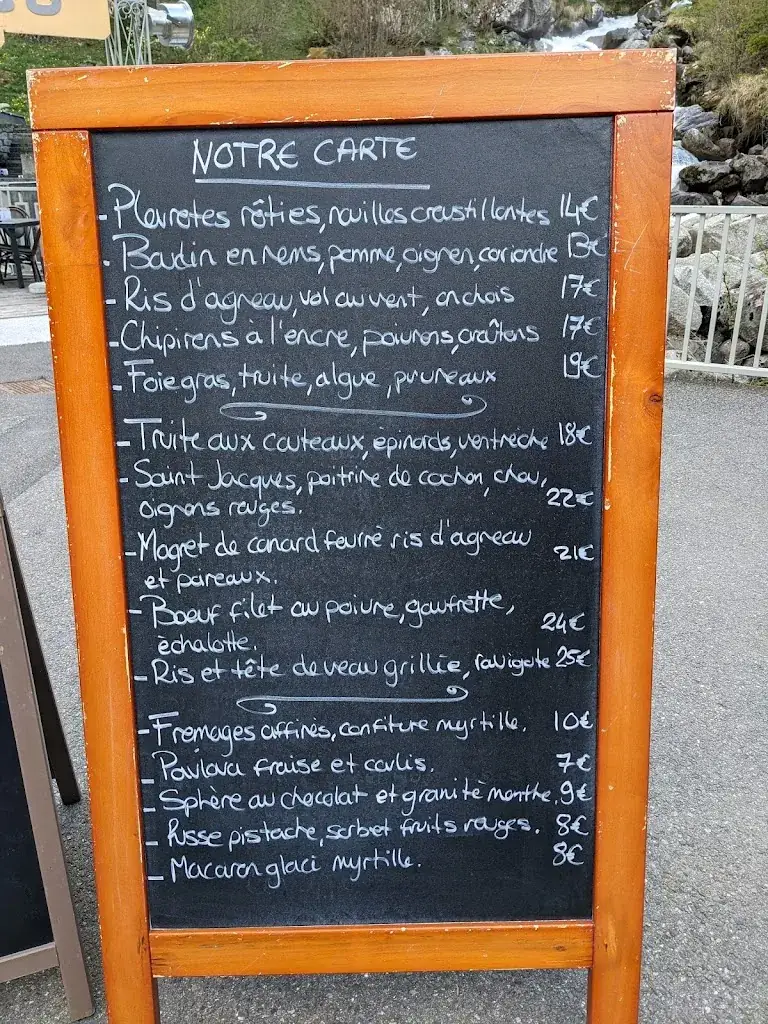 NOTRE CARTE
- Pleurotes rôties, nouilles croustillantes 14€
- Boudin en nems, pomme, oignon, coriandre 13€
- Ris d'agneau, vol au vent, anchois 17€
- Chipirons à l'encre, poivrons, croûtons 17€
- Foie gras, truite, algue, pruneaux 19€
- Truite aux couteaux, épinards, ventrèche 18€
- Saint Jacques, poitrine de cochon, chou,
oignons rouges. 22€
- Magret de canard fourré ris d'agneau
et poireaux. 21€
- Boeuf filet au poivre, gaufrette,
èchalotte. 24€
- Ris et tête de veau grillée, ravigote 25€
- Fromages affinés, confiture myrtille. 10€
- Pavlova fraise et coulis. 7€
- Sphère au chocolat et granité menthe. 9€
- Russe pistache, sorbet fruits rouges. 8€
- Macaron glacé myrtille. 8€